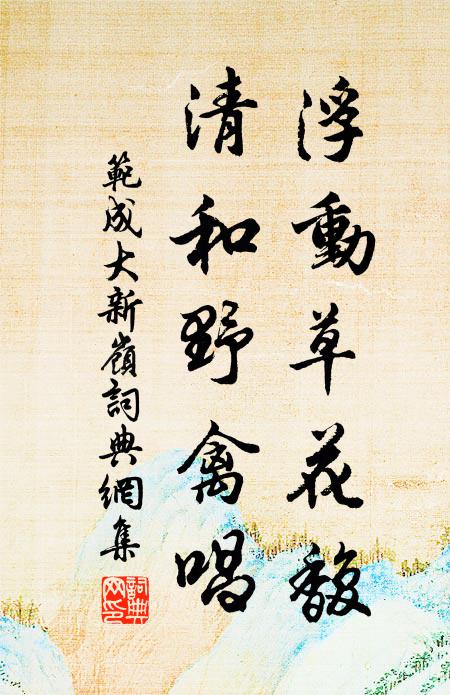 浮動草花馥
清和野禽唱
範成大新嶺詞典網集
詞典網印